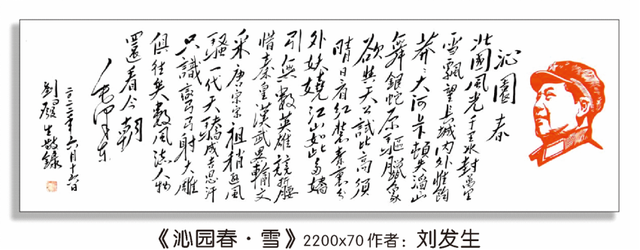 沁園春
北國風光千里冰封萬里
雪飄望長城内外惟餘
莽莽大河上下頓失滔滔山
舞銀蛇原驅蠟象
欲與天公試比高須
晴日看紅裝素裹分
外妖嬈江山如此多嬌
引無數英雄競折腰
惜秦皇漢武略輸文
采唐宗宋祖稍遜風
騷一代天驕成吉思汗
只識彎弓射大雕
俱往矣數風流人物
還看今朝
毛澤東
劉發生敬錄
《沁园春·雪》2200x70作者：刘发生